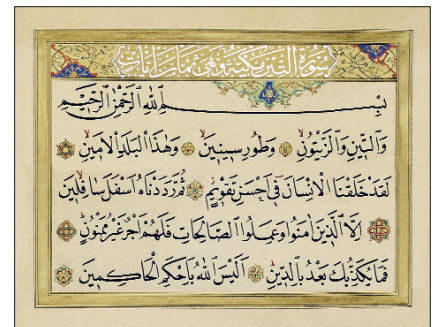 سورة التين مكية وهي ثمان ايات
بِسْمِ اللهِ الرَّحْمٰنِ الرَّحِيمِ
وَالتِّينِ وَالزَّيْتُونِ وَطُورِ سِينِينَ وَهٰذَا الْبَلَدِ الْاَمِينِ
لَقَدْ خَلَقْنَا الْاِنْسَانَ فِي اَحْسَنِ تَقْوِيمٍ ثُمَّ رَدَدْنَاهُ اَسْفَلَ سَافِلِينَ
اِلَّا الَّذِينَ اٰمَنُوا وَعَمِلُوا الصَّالِحَاتِ فَلَهُمْ اَجْرٌ غَيْرُ مَمْنُونٍ
فَمَا يُكَذِّبُكَ بَعْدُ بِالدِّينِ اَلَيْسَ اللهُ بِاَحْكَمِ الْحَاكِمِينَ